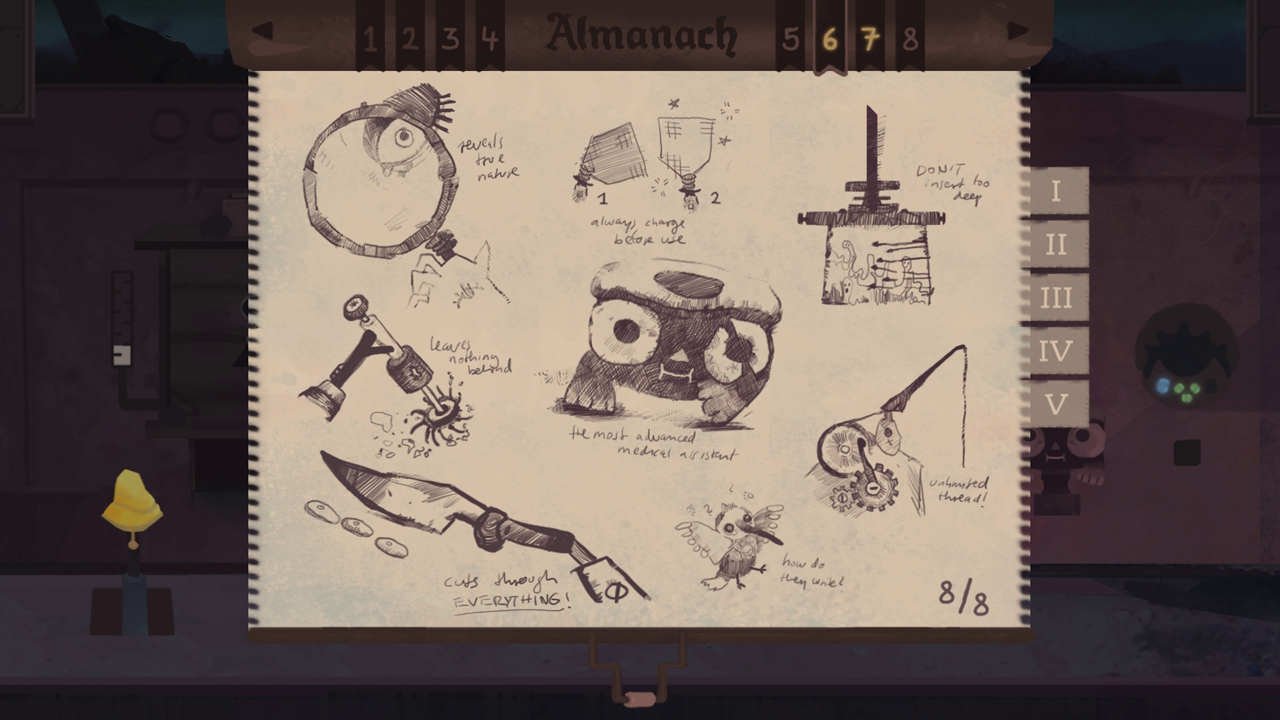 1 2 3 4 Almanach 5 6 7 8
reveals
true
nature
1 2
always charge
before use
DON'T
insert too
deep
I
II
III
IV
V
leaves
nothing
behind
the most advanced
medical assistant
unlimited
thread!
cuts through
EVERYTHING!
how do
they write?
8/8